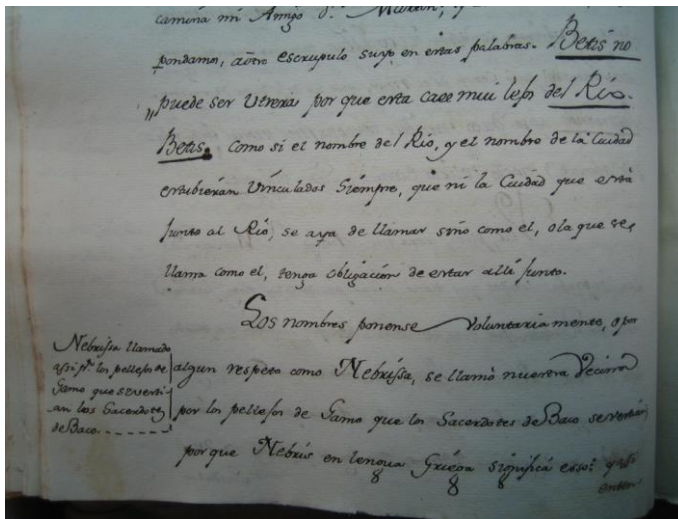 camina mi Amigo d.n
pondamos, aotro escrupulo suyo en estas palabras. Betis no
„puede ser Utrera por que esta caee mui lejos del Río.
Betis. Como si el nombre del Río, y el nombre de la Ciudad
estubieran Vinculados Siempre, que ni la Ciudad que está
junto al Río, se aya de llamar sino como el, o la que se,
llama como el, tenga obligación de estar allí junto.
Los nombres ponense Voluntariamente, o por
algun respeto como Nebrissa, se llamò nuestra Vecina
por los pellejos de Gamo que los Sacerdotes de Baco se vestian
por que Nebris en lengua Griega significa esso:
Nebrissa llamado
assi pr. los pellejos de
Gamo que se vesti
an los Sacerdotes
de Baco.